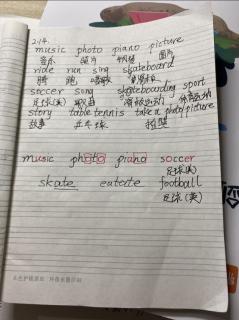 2.14.
music photo piano picture
音乐 照片 钢琴 图片
ride run sing skateboard
骑 跑 唱歌
soccer song skateboarding sport
足球(美) 歌曲 滑板运动 体育运动
story table tennis take a photo/picture
故事 乒乓球 拍照
music photo piano soccer
足球(美)
skate football
足球(英)